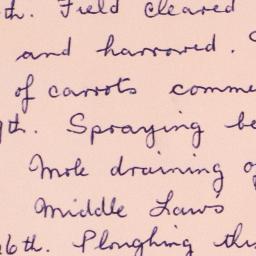 th. Field cleared
and harrowed.
of carrots comme
9th. Spraying be
Mole draining of
Middle Laws
26th. Ploughing this